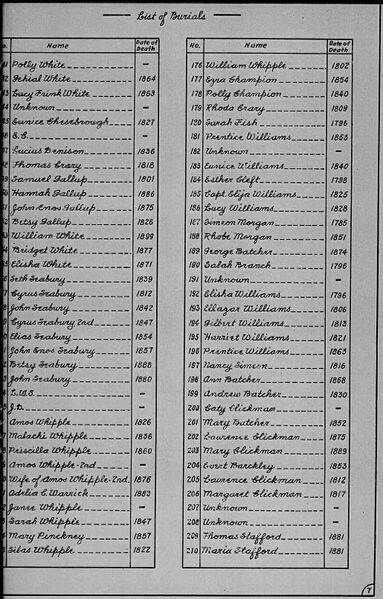 List of Burials
No. Name Date of Death
1 Polly White –
2 Jehial White 1864
3 Lucy Frink White 1863
4 Unknown –
5 Eunice Chesebrough 1827
6 E.S. –
7 Lucius Denison 1836
8 Thomas Crary 1818
9 Samuel Gallup 1801
0 Hannah Gallup 1886
1 John Enos Gallup 1875
2 Betsy Gallup 1826
3 William White 1899
4 Bridget White 1877
5 Elisha White 1871
6 Seth Seabury 1839
7 Cyrus Seabury 1812
8 John Seabury 1842
9 Cyrus Seabury 2nd 1847
0 Elias Seabury 1854
1 John Enos Seabury 1857
2 Betsy Seabury 1888
3 John Seabury 1880
4 L.W.S. –
5 J.D. –
6 Amos Whipple 1826
7 Malachi Whipple 1836
8 Priscilla Whipple 1860
9 Amos Whipple-2nd –
0 Wife of Amos Whipple-2nd 1876
1 Adelia C. Warrick 1883
2 Janre Whipple –
3 Sarah Whipple 1847
4 Mary Pinckney 1857
5 Silas Whipple 1822
No. Name Date of Death
176 William Whipple 1802
177 Ezra Champion 1854
178 Polly Champion 1840
179 Rhoda Crary 1809
180 Sarah Fish 1796
181 Prentice Williams 1853
182 Unknown –
183 Eunice Williams 1840
184 Esther Cleft 1798
185 Capt. Elija Williams 1825
186 Lucy Williams 1828
187 Simeon Morgan 1785
188 Rhobe Morgan 1851
189 George Batcher 1874
190 Salah Branch 1796
191 Unknown –
192 Elisha Williams 1796
193 Eleazar Williams 1806
194 Gilbert Williams 1813
195 Harriet Williams 1821
196 Prentice Williams 1863
197 Nancy Simeon 1816
198 Ann Batcher 1868
199 Andrew Batcher 1830
200 Caty Clickman –
201 Mary Butcher 1852
202 Lawrence Clickman 1875
203 Mary Clickman 1889
204 Evert Barckley 1853
205 Lawrence Clickman 1812
206 Margaret Clickman 1817
207 Unknown –
208 Unknown –
209 Thomas Stafford 1881
210 Maria Stafford 1881
7